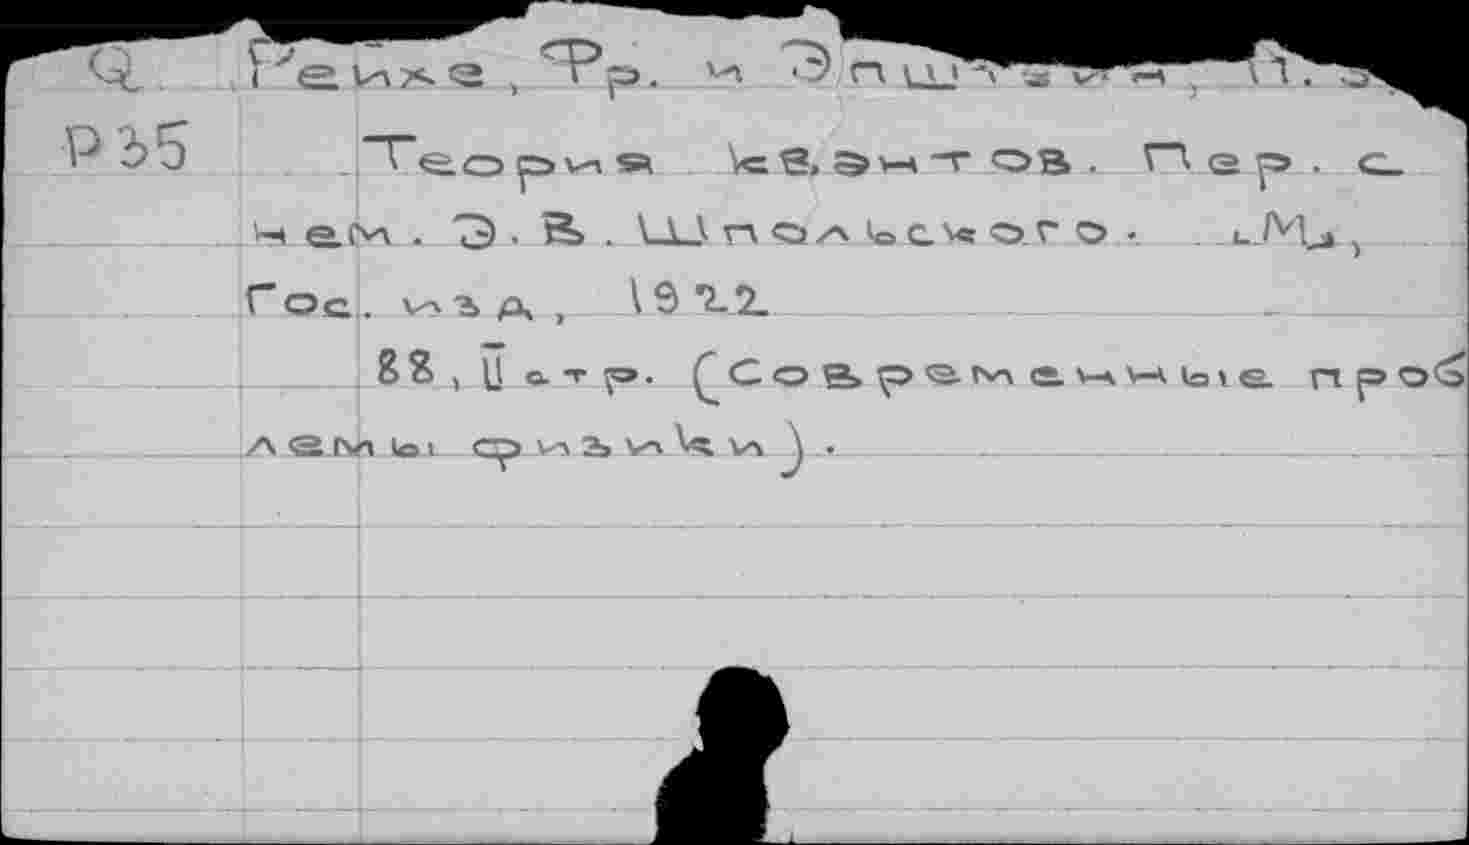 Q Рейхе, Фр. и Эпштейн, П. С.
Р35 Теория квантов. Пер. с
нем. Э. В. Шпольского. М.,
Гос. изд, 1922.
88, II стр. (Современные проб
лемы физики).